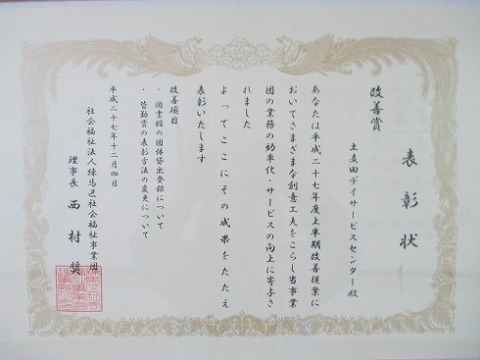 表彰状
改善賞
土支田デイサービスセンター殿
あなたは平成二十七年度上半期改善提案に
おいてさまざまな創意工夫をこらし当事業
団の業務の効率化・サービスの向上に寄与さ
れました
よってここにその成果をたたえ
表彰いたします
改善項目
・図書館の団体貸出登録について
・皆勤賞の表彰方法の変更について
平成二十七年十二月四日
社会福祉法人練馬区社会福祉事業団
理事長 西村